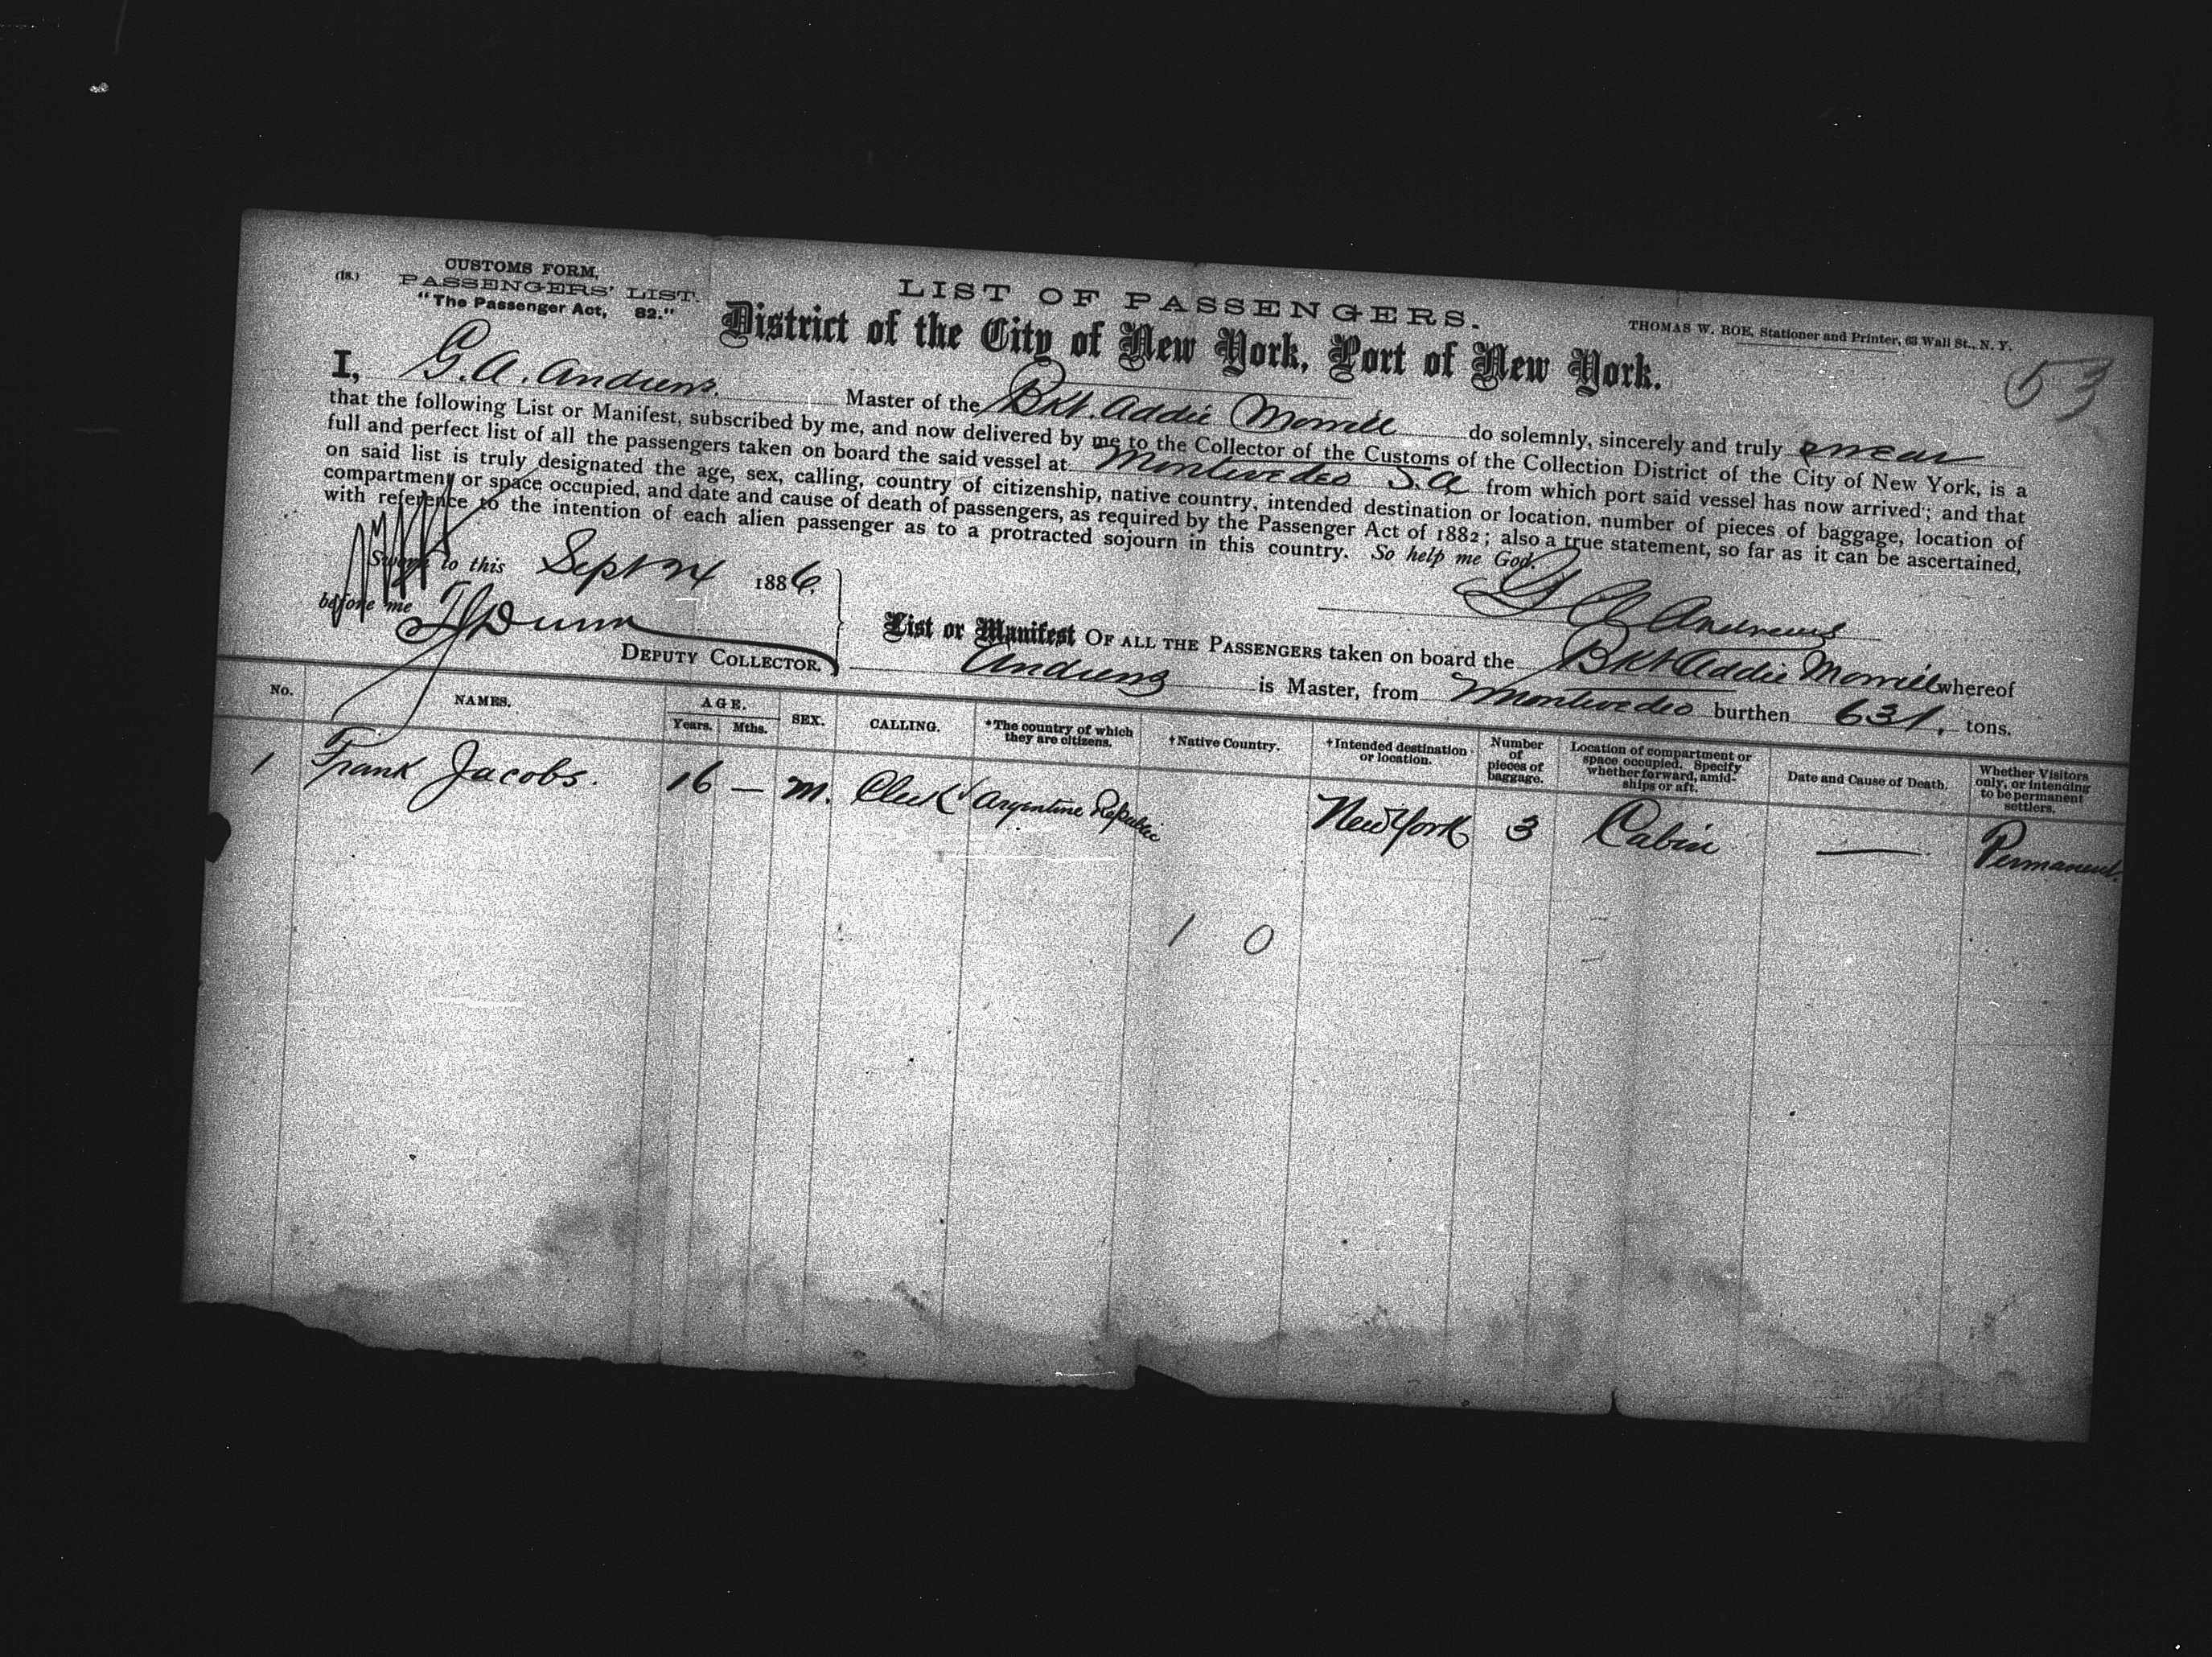 (18.) CUSTOMS FORM,
PASSENGERS' LIST.
"The Passenger Act, 82."
LIST OF PASSENGERS.
THOMAS W. ROE, Stationer and Printer, 63 Wall St., N. Y.
District of the City of New York, Port of New York.
53
I, G. A. Andrews. Master of the Bkt. Addie Morrill do solemnly, sincerely and truly swear
that the following List or Manifest, subscribed by me, and now delivered by me to the Collector of the Customs of the Collection District of the City of New York, is a
full and perfect list of all the passengers taken on board the said vessel at Montevedeo S. A from which port said vessel has now arrived; and that
on said list is truly designated the age, sex, calling, country of citizenship, native country, intended destination or location, number of pieces of baggage, location of
compartment or space occupied, and date and cause of death of passengers, as required by the Passenger Act of 1882; also a true statement, so far as it can be ascertained,
with reference to the intention of each alien passenger as to a protracted sojourn in this country. So help me God.
Sworn to this Sept 24 1886.
G A Andrews
before me Dunn
DEPUTY COLLECTOR.
List or Manifest OF ALL THE PASSENGERS taken on board the Bkt Addie Morrill whereof
Andrews is Master, from Montevedeo burthen 631, tons.
No. NAMES. AGE. Years. Mths. SEX. CALLING. *The country of which they are citizens. †Native Country. †Intended destination or location. Number of pieces of baggage. Location of compartment or space occupied. Specify whether forward, amidships or aft. Date and Cause of Death. Whether Visitors only, or intending to be permanent settlers.
1 Frank Jacobs. 16 — M. Clerk Argentine Republic New York 3 Cabin — Permanent.
1 0